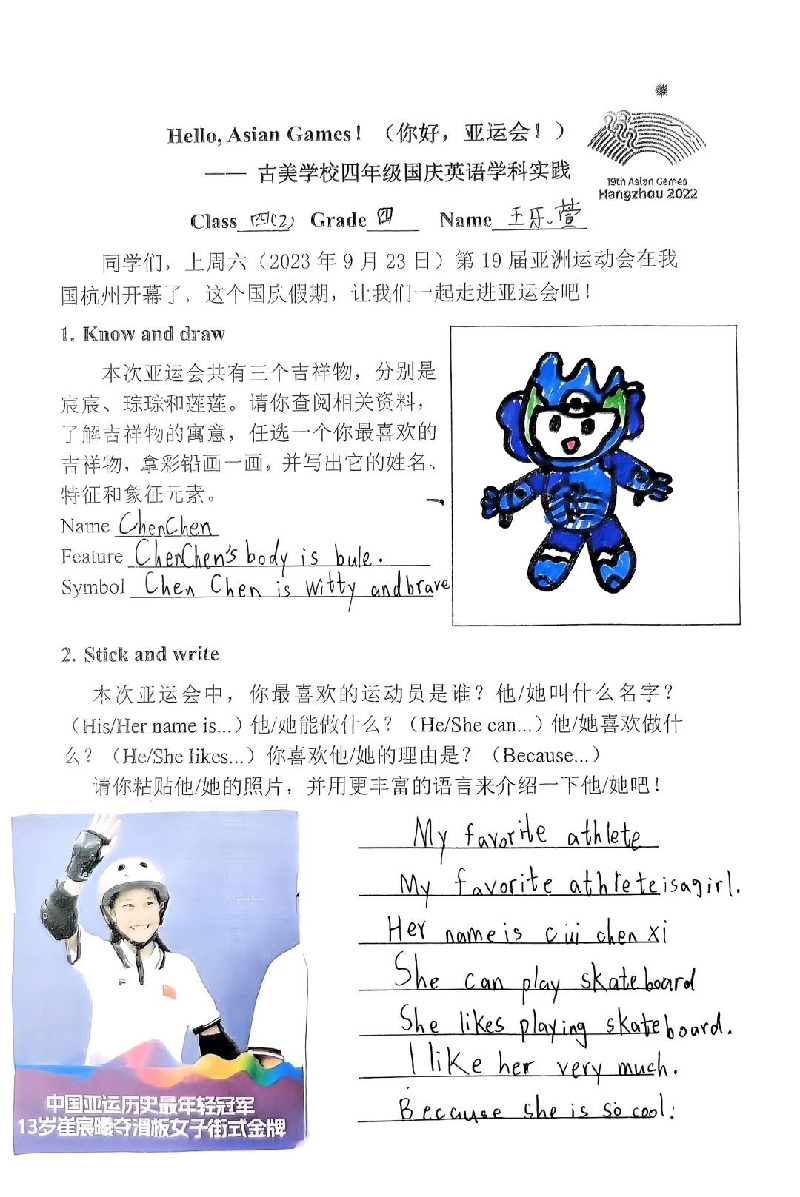 Hello, Asian Games！（你好，亚运会！）
—— 古美学校四年级国庆英语学科实践
19th Asian Games
Hangzhou 2022
Class 四(2) Grade 四 Name 王乐萱
同学们，上周六（2023 年 9 月 23 日）第 19 届亚洲运动会在我
国杭州开幕了，这个国庆假期，让我们一起走进亚运会吧！
1. Know and draw
本次亚运会共有三个吉祥物，分别是
宸宸、琮琮和莲莲。请你查阅相关资料，
了解吉祥物的寓意，任选一个你最喜欢的
吉祥物，拿彩铅画一画，并写出它的姓名、
特征和象征元素。
Name ChenChen
Feature ChenChen's body is bule.
Symbol Chen Chen is witty and brave
2. Stick and write
本次亚运会中，你最喜欢的运动员是谁？他/她叫什么名字？
（His/Her name is...）他/她能做什么？（He/She can...）他/她喜欢做什
么？（He/She likes...）你喜欢他/她的理由是？（Because...）
请你粘贴他/她的照片，并用更丰富的语言来介绍一下他/她吧！
My favorite athlete
My favorite athlete is a girl.
Her name is cui chen xi
She can play skateboard
She likes playing skateboard.
I like her very much.
Because she is so cool.
中国亚运历史最年轻冠军
13岁崔宸曦夺滑板女子街式金牌